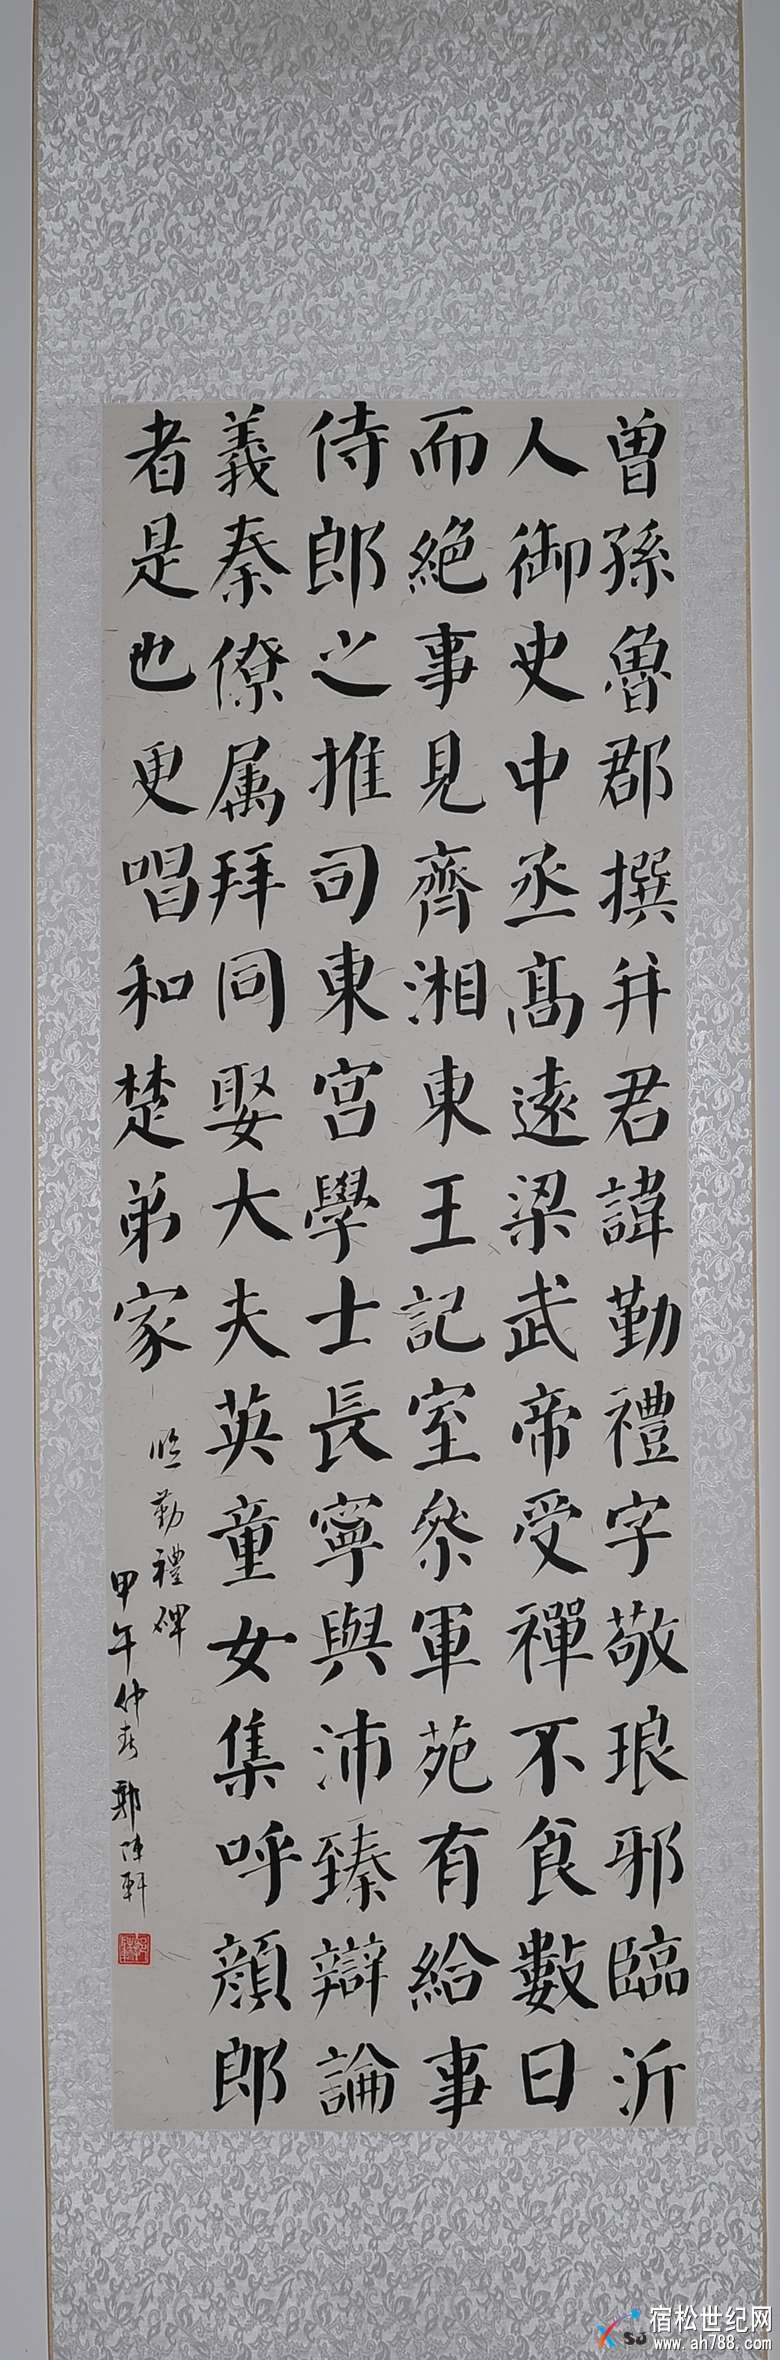 曽孫魯郡撰并君諱勤禮字敬琅邪臨沂
人御史中丞髙遠梁武帝受禪不食數日
而絕事見齊湘東王記室叅軍苑有給事
侍郎之推司東宫學士長寧與沛臻辯論
義秦僚属拜同娶大夫英童女集呼顔郎
者是也更唱和楚弟家
臨勤禮碑
甲午仲春郭陣軒
宿松世纪网
www.ah788.com